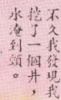 不久我發現我
挖了一個井，
水淹到頸。